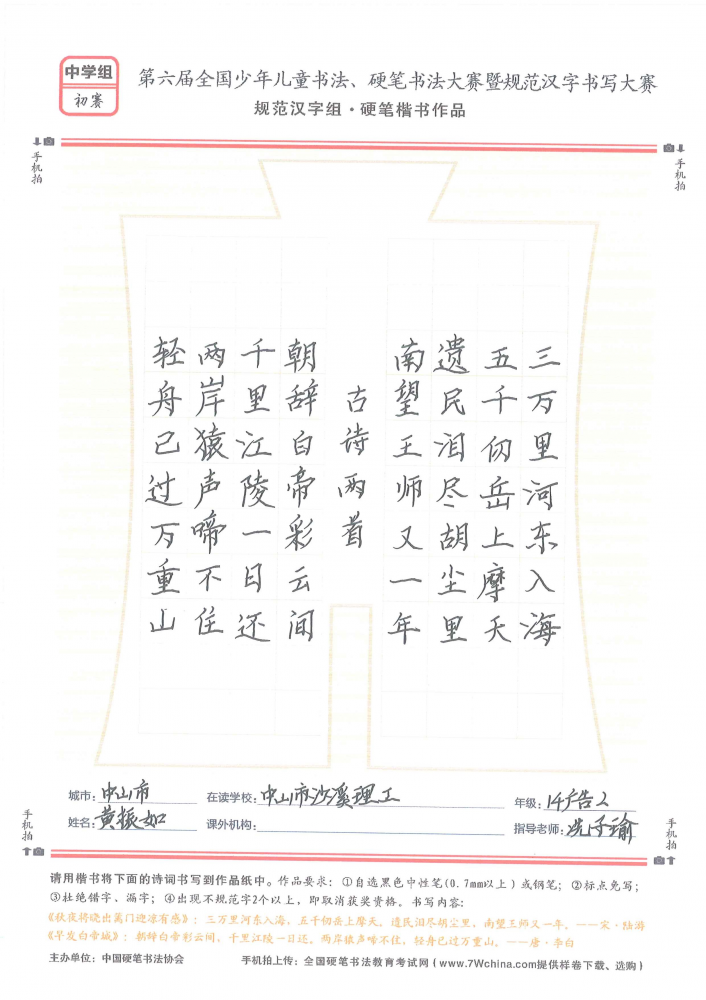 中学组
初赛
第六届全国少年儿童书法、硬笔书法大赛暨规范汉字书写大赛
规范汉字组·硬笔楷书作品
手机拍
手机拍
三万里河东入海
五千仞岳上摩天
遗民泪尽胡尘里
南望王师又一年
古诗两首
朝辞白帝彩云间
千里江陵一日还
两岸猿声啼不住
轻舟已过万重山
城市：中山市 在读学校：中山市沙溪理工 年级：14广告2
姓名：黄振如 课外机构： 指导老师：冼子瑜
手机拍
手机拍
请用楷书将下面的诗词书写到作品纸中。作品要求：①自选黑色中性笔(0.7mm以上）或钢笔；②标点免写；
③杜绝错字、漏字；④出现不规范字2个以上，即取消获奖资格。书写内容：
《秋夜将晓出篱门迎凉有感》：三万里河东入海，五千仞岳上摩天。遗民泪尽胡尘里，南望王师又一年。——宋·陆游
《早发白帝城》：朝辞白帝彩云间，千里江陵一日还。两岸猿声啼不住，轻舟已过万重山。——唐·李白
主办单位：中国硬笔书法协会 手机拍上传：全国硬笔书法教育考试网（www.7Wchina.com提供样卷下载、选购）